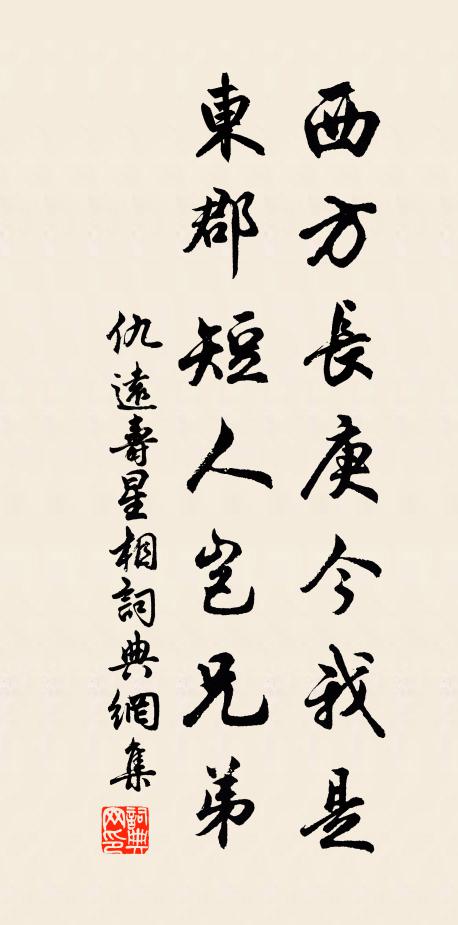 西方長庚今我是
東郡短人豈兄弟
仇遠壽星相詞典網集
詞典網印